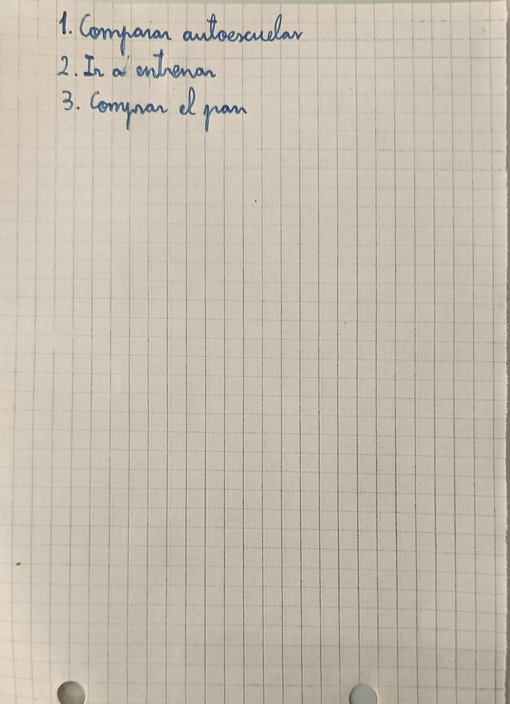 1. Comparar autoescuelas
2. Ir a entrenar
3. Comprar el pan